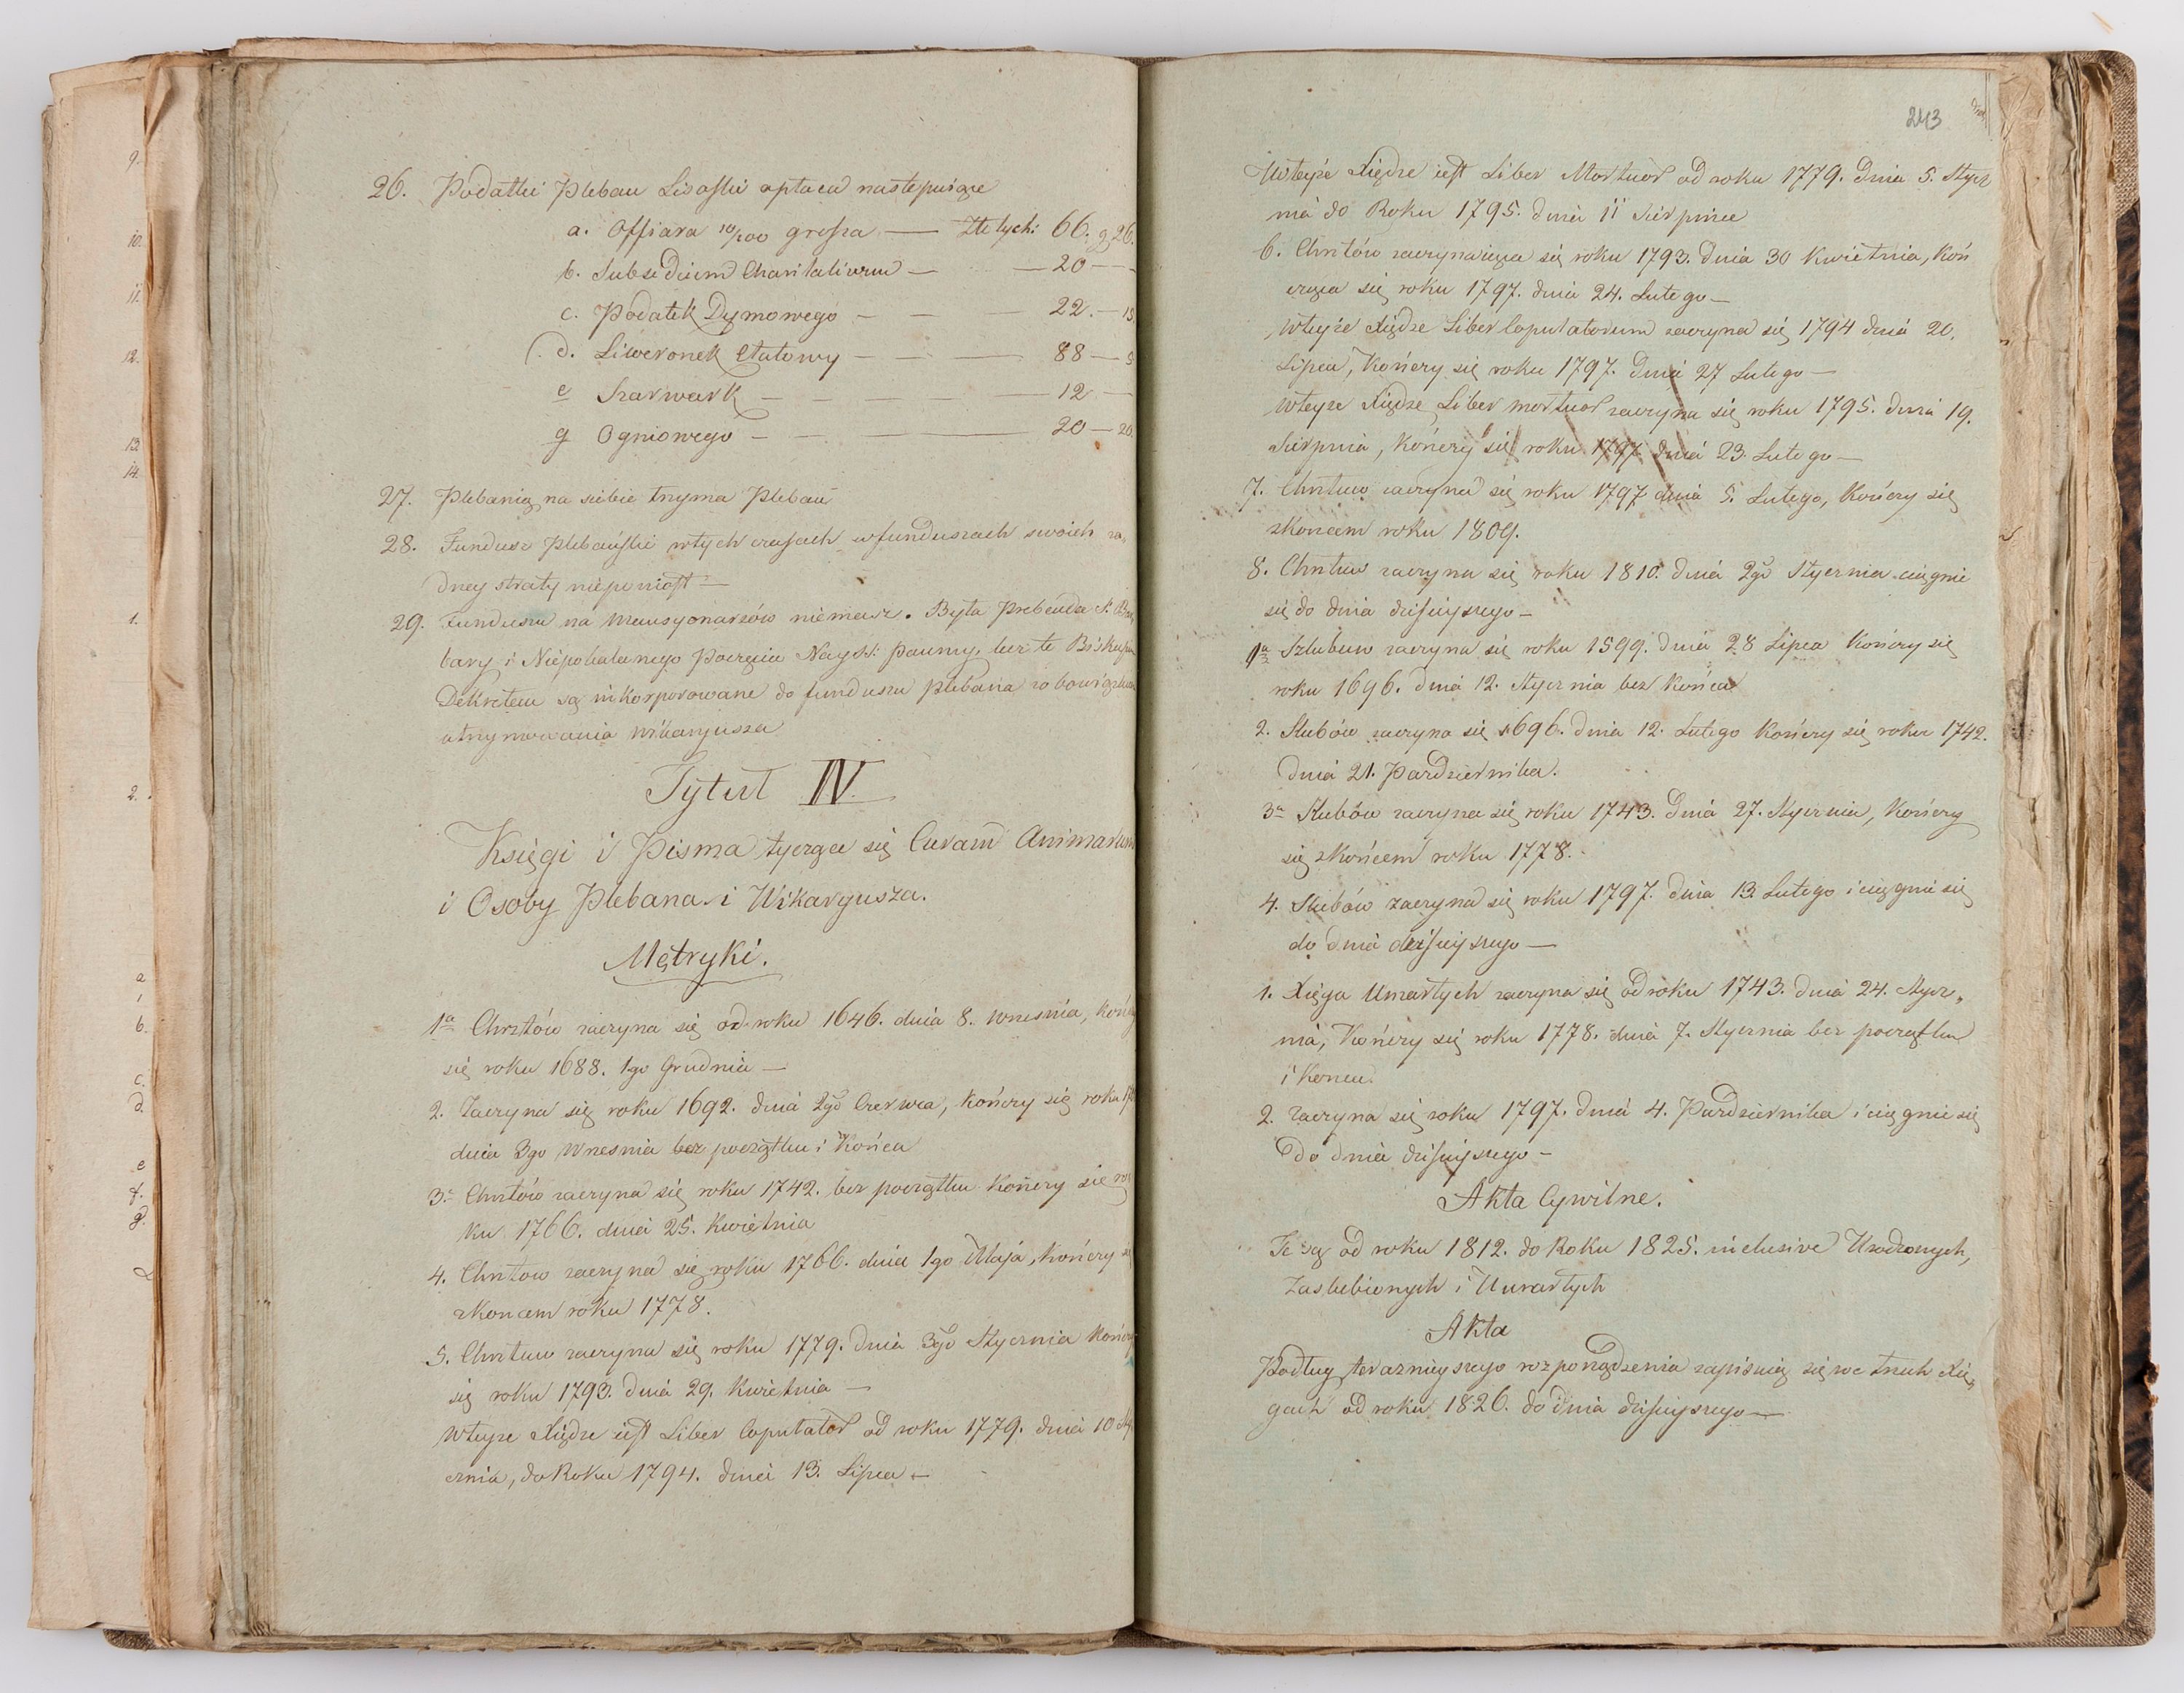 26. Podatki Pleban Lisoski opłaca następuiące
a. Offiara 10/100 grosza — Złotych: 66. g 26.
b. Subsidium Charitativum — — 20 — —
c. Podatek Dymowego — — — 22. — 15.
d. Liweronek Etatowy — — — 88 — 5
e Szarwark — — — — 12 —
g Ogniowego — — — 20 — 20.
27. Plebanią na siebie trzyma Pleban
28. Fundusz Plebański wtych czasach w funduszach swoich ża,
dney straty niepeniosł —
29. Funduszu na Mansyonarzów niemasz. Była Prebenda S. Bar
bary i Niepokalanego Poczęcia Nayśś: Panny, lecz te Biskupim
Dekretem są inkorporowane do funduszu Plebana zobowiązkiem
utrzymowania wikaryusza
Tytuł IV.
Księgi i Pisma tyczące się Curam Animarum
i Osoby Plebana i Wikaryusza.
Metryki.
1a Chrztów zaczyna się od roku 1646. dnia 8. Wnesnia, Kończy
się roku 1688. 1go Grudnia —
2. Zaczyna się roku 1692. dnia 2go Czerwca, kończy się roku
dnia 3go Wnesnia bez początku i Końca
3a Chrztów zaczyna się roku 1742. bez początku Kończy się ro
ku 1766. dnia 25. Kwietnia
4. Chrztow zaczyna się roku 1766. dnia 1go Maja, kończy się
zkoncem roku 1778.
5. Chrztuw zaczyna się roku 1779. dnia 3go Stycznia Kończy
się roku 1793. dnia 29. Kwietnia —
Wteyze Xiędze iest Liber Copulator od roku 1779. dnia 10 Sty
cznia, do Roku 1794. dnia 13. Lipca —
9.
10.
11.
12.
13.
14.
1.
2.
a
b.
c.
d.
e
f.
g.
243
Wteyże Xiędze iest Liber Mortuor od roku 1779. dnia 5. Stycz
nia do Roku 1795. dnia 11 Sierpnice
6. Chrztów zaczynaiąca się roku 1793. dnia 30 Kwietnia, Koń
cząca się roku 1797. dnia 24. Lutego —
Wteyże Xiędze Liber Copulatorum zaczyna się 1794 dnia 20.
Lipca, Kończy się roku 1797. dnia 27 Lutego —
Wteyze Xiędze Liber mortuor zaczyna się roku 1795. dnia 19.
Sierpnia, Kończy się roku 1797 dnia 23. Lutego —
7. Chrztuw zaczyna się roku 1797 dnia 5. Lutego, Kończy się
zkoncem roku 1809.
8. Chrztuw zaczyna się roku 1810. dnia 2go Stycznia ciągnie
się do dnia dzisieyszego —
1a Szlubuw zaczyna się roku 1599. dnia 28 Lipca Kończy się
roku 1696. dnia 12. Stycznia bez Końca
2. Slubów zaczyna się 1696. dnia 12. Lutego Kończy się roku 1742.
dnia 21. Pazdziernika.
3a Slubów zaczyna się roku 1743. dnia 27. Stycznia, Kończy
się zkońcem roku 1778.
4. Slubów zaczyna się roku 1797. dnia 13. Lutego i ciągnie się
do dnia dzisieyszego —
1. Xięga Umarłych zaczyna się od roku 1743. dnia 24. Stycz,
nia, Kończy się roku 1778. dnia 7. Stycznia bez początku
i Koncu.
2. Zaczyna się roku 1797. dnia 4. Pazdziernika i ciągnie się
do dnia dzisieyszego —
Akta Cywilne.
Te są od roku 1812. do Roku 1825. inclusive Urodzonych,
Zaslubionych i Umarłych
Akta
Podług terazniejszego rozporządzenia zapisuią się we trzech Xię,
gach od roku 1826. do dnia dzisieyszego —